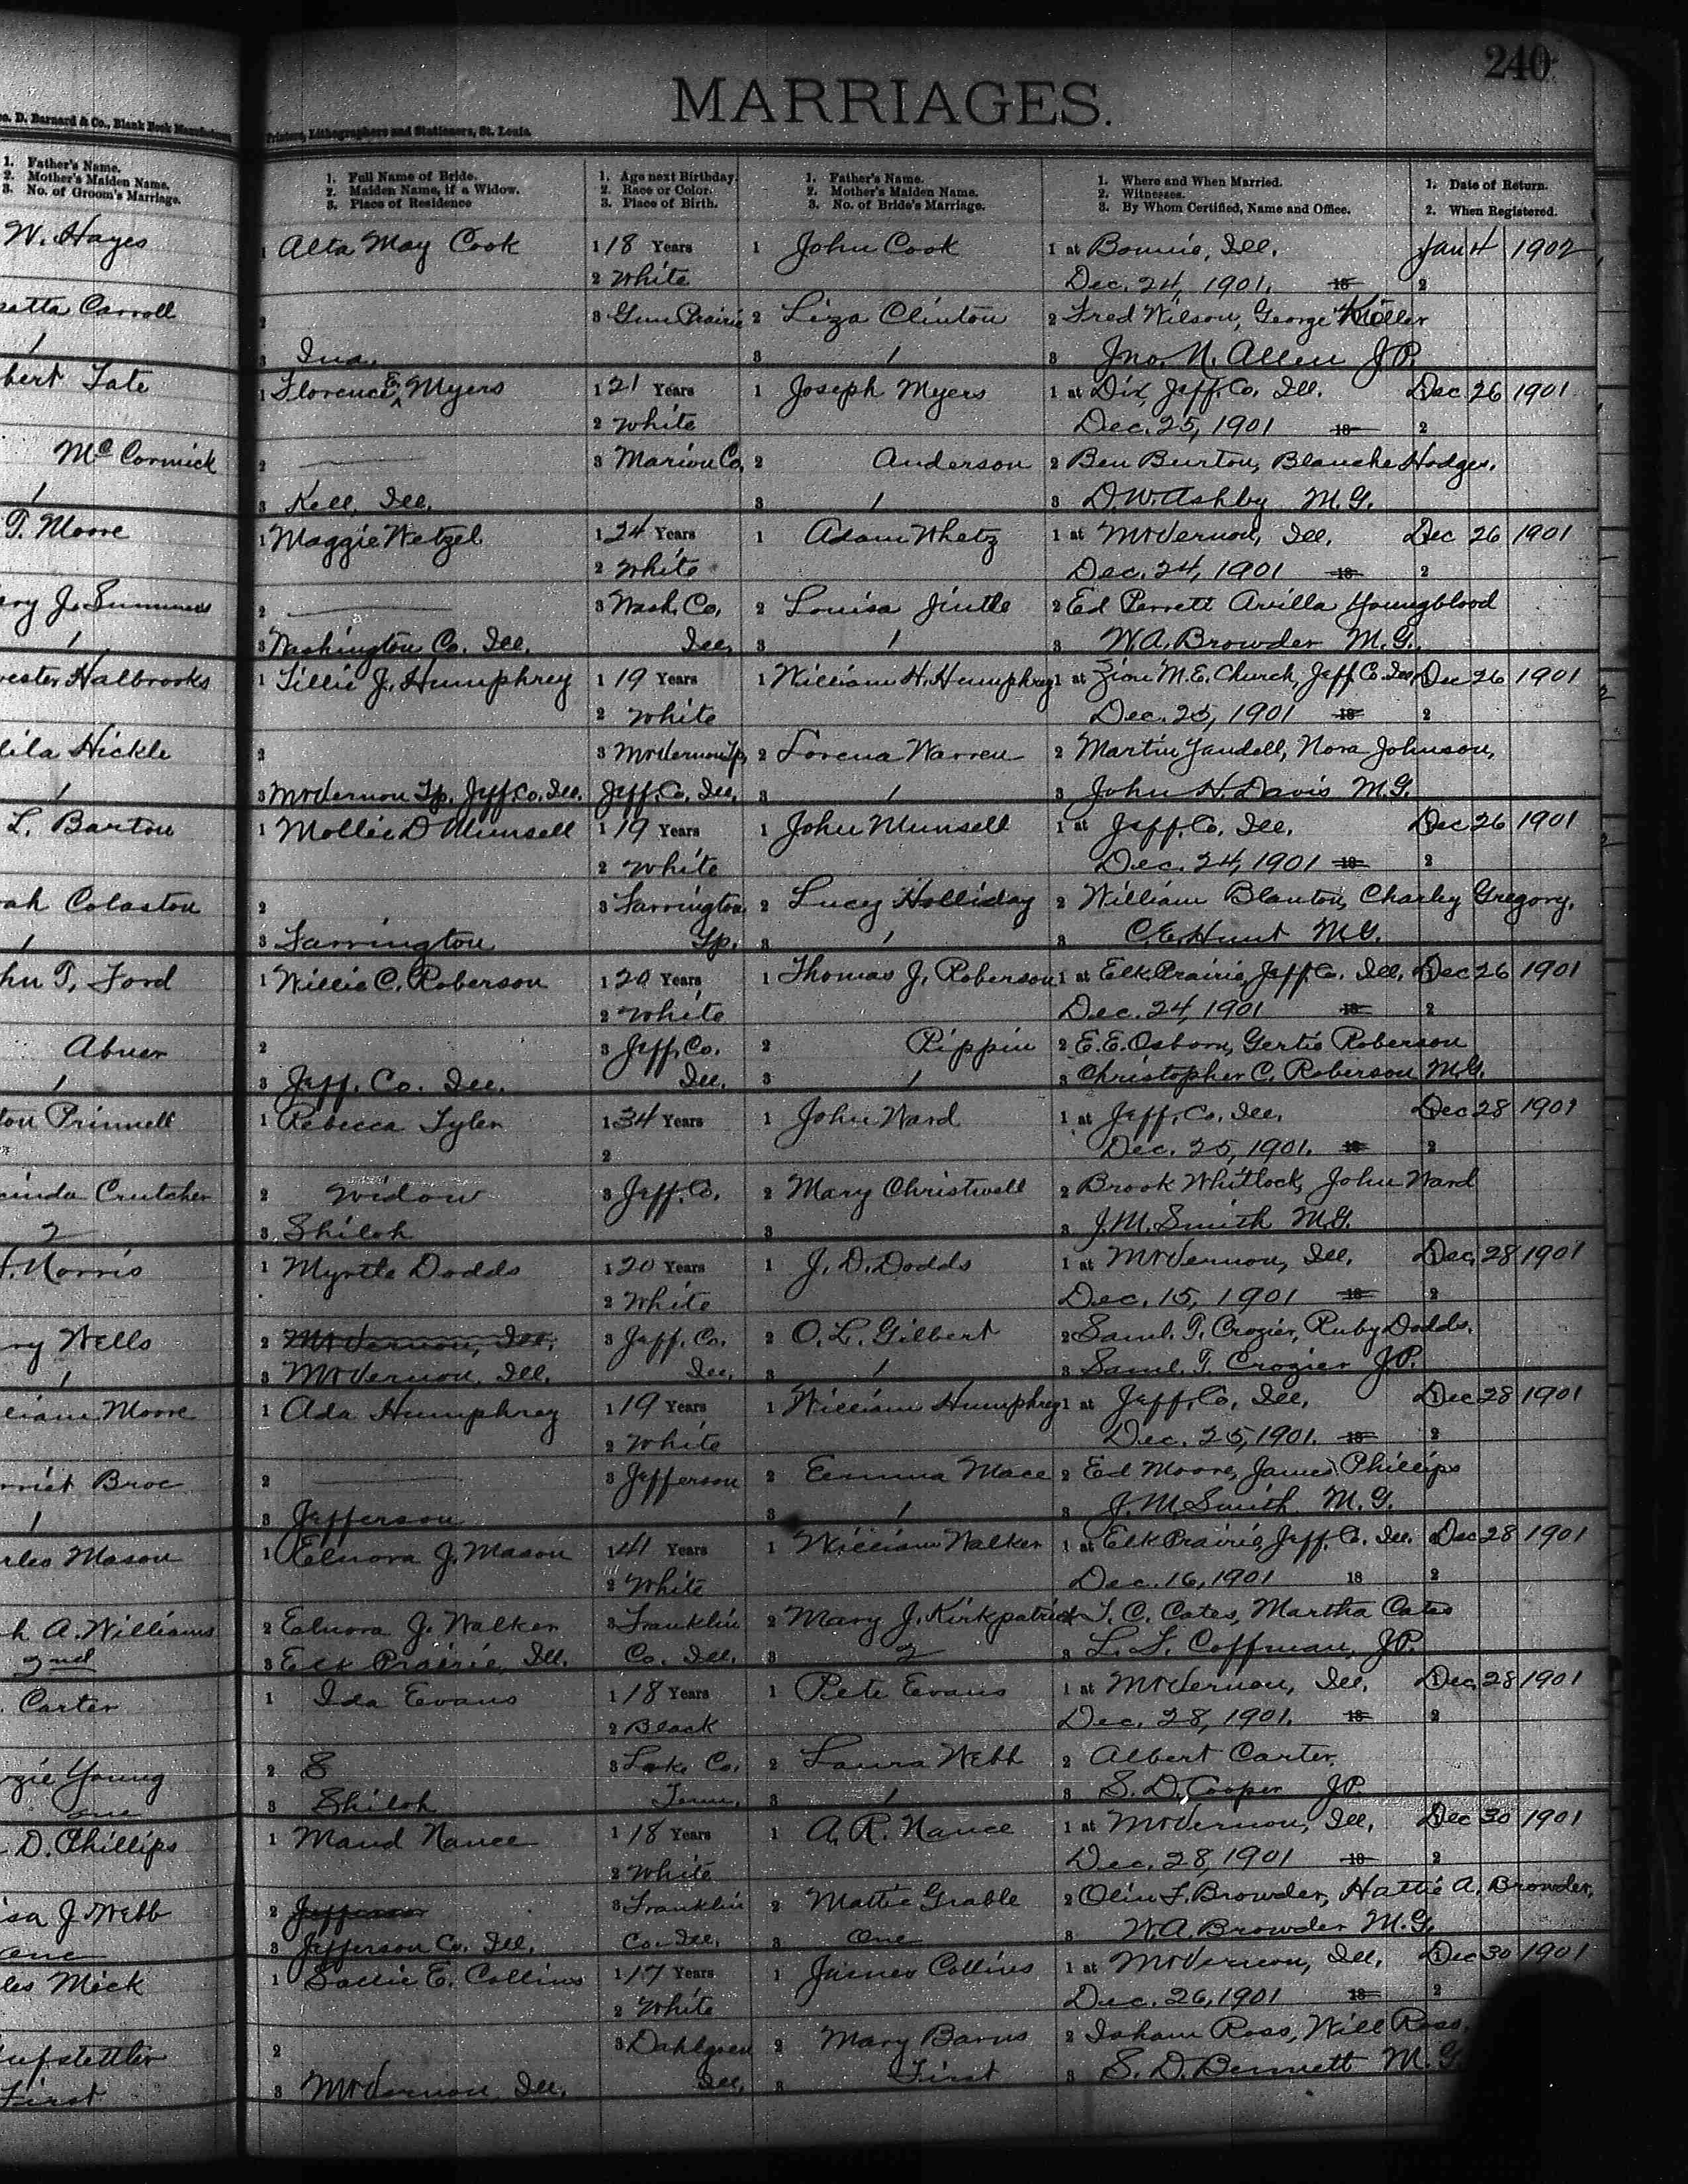 240
MARRIAGES.
Geo. D. Barnard & Co., Blank Book Manufacturers Printers, Lithographers and Stationers, St. Louis.
1. Father's Name.
2. Mother's Maiden Name.
3. No. of Groom's Marriage.
1. Full Name of Bride.
2. Maiden Name, if a Widow.
3. Place of Residence
1. Age next Birthday.
2. Race or Color.
3. Place of Birth.
1. Father's Name.
2. Mother's Maiden Name.
3. No. of Bride's Marriage.
1. Where and When Married.
2. Witnesses.
3. By Whom Certified, Name and Office.
1. Date of Return.
2. When Registered.
W. Hayes 1 Alta May Cook 1 18 Years 1 John Cook 1 at Bonnie, Ill. Jan 4 1902
2 White Dec. 24, 1901. 18 2
Carroll 2 3 Gun Prairie 2 Liza Clinton 2 Fred Wilson, George
1 3 Ina. 3 1 3 Jno. N. Allen J.P.
bert Tate 1 Florence E. Myers 1 21 Years 1 Joseph Myers 1 at Dix, Jeff. Co. Ill. Dec 26 1901
2 White Dec. 25, 1901 18 2
McCormick 2 3 Marion Co, 2 Anderson 2 Ben Burton, Blanche Hodges.
1 3 Kell, Ill. 3 1 3 D.W. Ashby M.G.
T. Moore 1 Maggie Wetzel 1 24 Years 1 Adam Whetz 1 at Mt Vernon, Ill. Dec 26 1901
2 White Dec. 24, 1901 18 2
ary J. Summers 2 3 Wash. Co, 2 Louisa 2 Ed Perrett Arvilla Youngblood
1 3 Washington Co. Ill. Ill, 3 1 3 W.A. Browder M.G.
vester Halbrooks 1 Tillie J. Humphrey 1 19 Years 1 William H. Humphrey 1 at Zion M.E. Church, Jeff Co. Ill. Dec 26 1901
2 White Dec. 25, 1901 18 2
lila Hickle 2 3 Mt Vernon Tp, 2 Lorena Warren 2 Martin Yandell, Nora Johnson,
1 3 Mt Vernon Tp. Jeff. Co. Ill. Jeff. Co. Ill, 3 1 3 John H. Davis M.G.
L. Barton 1 Mollie D Munsell 1 19 Years 1 John Munsell 1 at Jeff. Co. Ill. Dec 26 1901
2 White Dec. 24, 1901 18 2
ah Colaston 2 3 Farrington 2 Lucy Holliday 2 William Blanton, Charley Gregory.
1 3 Farrington Tp. 3 1 3 C.E. Hunt M.G.
hn T. Ford 1 Willie C. Roberson 1 20 Years 1 Thomas J. Roberson 1 at Elk Prairie, Jeff. Co. Ill. Dec 26 1901
2 White Dec. 24, 1901 18 2
Abner 2 3 Jeff. Co. 2 Pippin 2 E.E. Osborn, Gertie Roberson
1 3 Jeff. Co. Ill. Ill. 3 1 3 Christopher C. Roberson M.G.
ton Prinnell 1 Rebecca Tyler 1 34 Years 1 John Ward 1 at Jeff. Co. Ill. Dec 28 1901
2 Dec. 25, 1901. 18 2
cinda Crutcher 2 Widow 3 Jeff. Co. 2 Mary Christwell 2 Brook Whitlock, John Ward
2 3 Shiloh 3 3 J.M. Smith M.G.
Norris 1 Myrtle Dodds 1 20 Years 1 J. D. Dodds 1 at Mt Vernon, Ill. Dec. 28 1901
2 White Dec. 15, 1901 18 2
ry Wells 2 Mt Vernon, Ill. 3 Jeff. Co. 2 O. L. Gilbert 2 Saml. T. Crozier, Ruby Dodds.
1 3 Mt Vernon, Ill. Ill. 3 1 3 Saml. T. Crozier J.P.
liam Moore 1 Ada Humphrey 1 19 Years 1 William Humphrey 1 at Jeff. Co, Ill. Dec 28 1901
2 White Dec. 25, 1901. 18 2
rriet Broc 2 3 Jefferson 2 Emma Mace 2 Ed Moore, James Phillips
1 3 Jefferson 3 1 3 J.M. Smith M.G.
rles Mason 1 Elnora J. Mason 1 41 Years 1 William Walker 1 at Elk Prairie, Jeff. Co. Ill. Dec 28 1901
2 White Dec. 16, 1901 18 2
h A. Williams 2 Ealnora J. Walker 3 Franklin 2 Mary J. Kirkpatrick T. C. Cates, Martha Cates
2nd 3 Elk Prairie, Ill. Co. Ill. 3 2 3 L. F. Coffman, J.P.
Carter 1 Ida Evans 1 18 Years 1 Pete Evans 1 at Mt Vernon, Ill. Dec. 28 1901
2 Black Dec. 28, 1901. 18 2
zie Young 2 S 3 Lake Co. 2 Laura Webb 2 Albert Carter,
one 3 Shiloh Tenn. 3 1 3 S. D. Cooper JP
D. Phillips 1 Maud Nance 1 18 Years 1 A. R. Nance 1 at Mt Vernon, Ill. Dec 30 1901
2 White Dec. 28, 1901 18 2
isa J. Webb 2 Jefferson 3 Franklin 2 Mattie Grable 2 Olin F. Browder, Hattie A. Browder,
one 3 Jefferson Co. Ill. Co. Ill. 3 One 3 W.A. Browder M.G.
les Mick 1 Sallie E. Collins 1 17 Years 1 James Collins 1 at Mt Vernon, Ill. Dec 30 1901
2 White Dec. 26, 1901 18 2
ufstettler 2 3 Dahlgren 2 Mary Barns 2 Isham Ross, Will Ross.
First 3 Mt Vernon, Ill. Ill. 3 First 3 S. D. Bennett M.G.